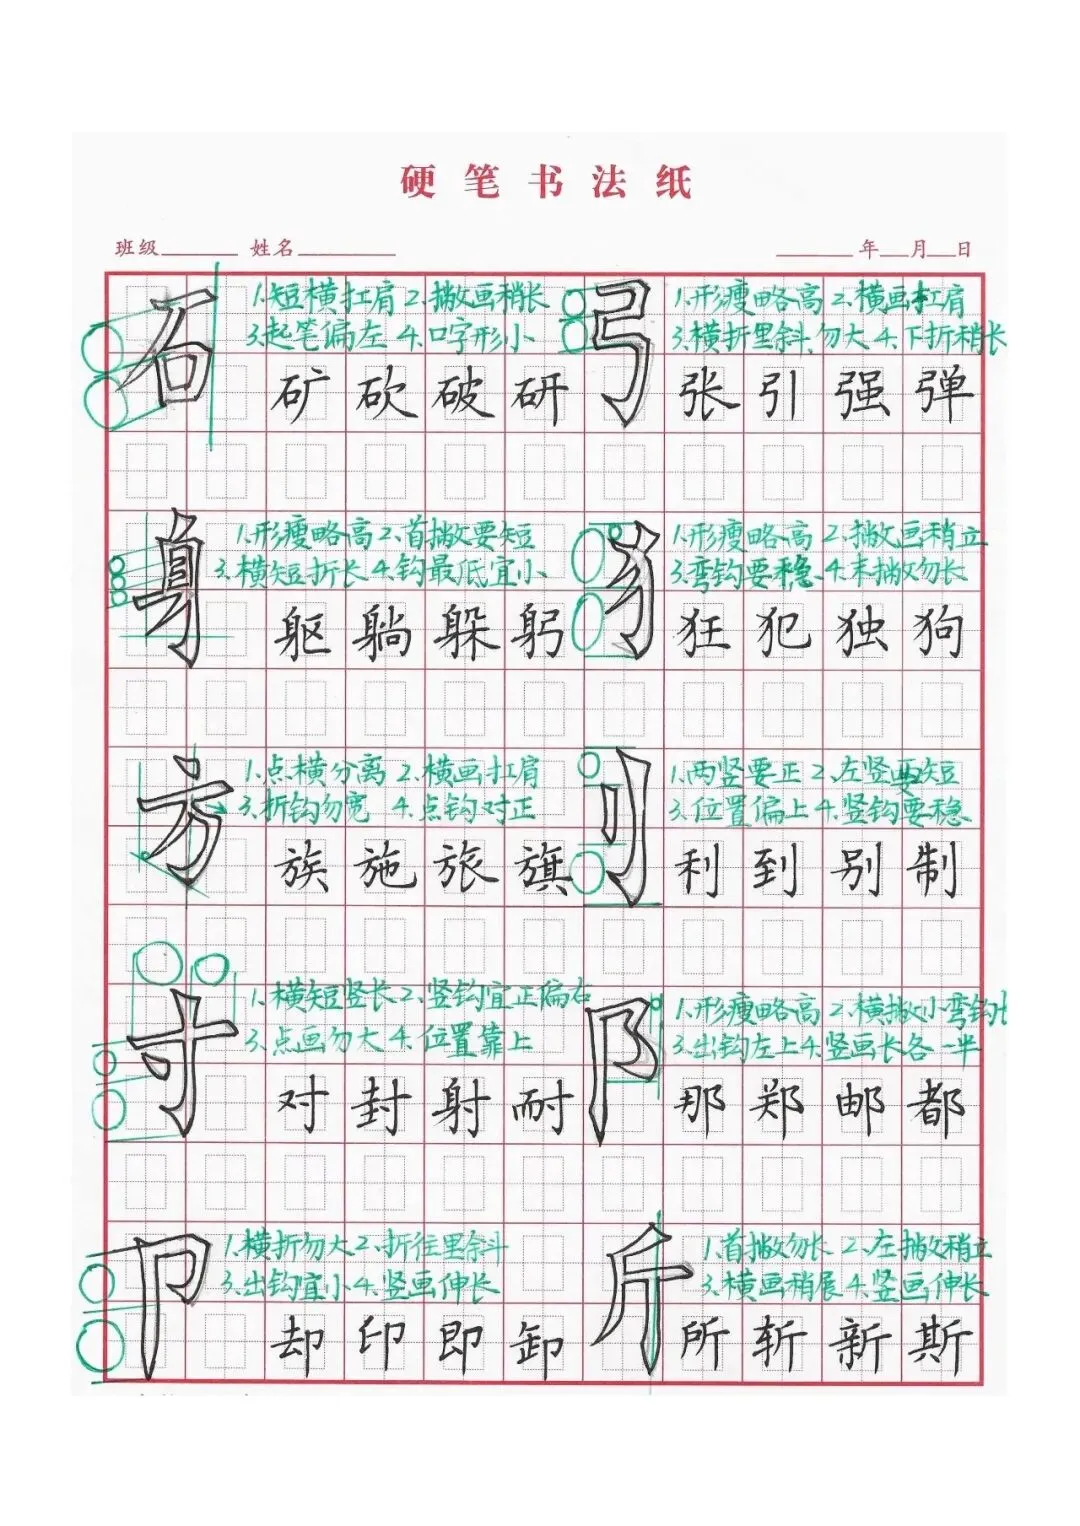 硬笔书法纸
班级 姓名 年 月 日
石 1.短横扛肩 2.撇画稍长
3.起笔偏左 4.口字形小
矿 砍 破 研
弓 1.形瘦略高 2.横画扛肩
3.横折里斜勿大 4.下折稍长
张 引 强 弹
身 1.形瘦略高 2.首撇要短
3.横短折长 4.钩最低宜小
躯 躺 躲 躬
犭 1.形瘦略高 2.撇画稍立
3.弯钩要稳 4.末撇勿长
狂 犯 独 狗
方 1.点横分离 2.横画扛肩
3.折钩勿宽 4.点钩对正
族 施 旅 旗
刂 1.两竖要正 2.左竖要短
3.位置偏上 4.竖钩要稳
利 到 别 制
寸 1.横短竖长 2.竖钩宜正偏右
3.点画勿大 4.位置靠上
对 封 射 耐
阝 1.形瘦略高 2.横撇小弯钩
3.出钩左上 4.竖画长各一半
那 郑 邮 都
卩 1.横折勿大 2.折往里斜
3.出钩宜小 4.竖画伸长
却 印 即 卸
斤 1.首撇勿长 2.左撇稍立
3.横画稍展 4.竖画伸长
所 斩 新 斯